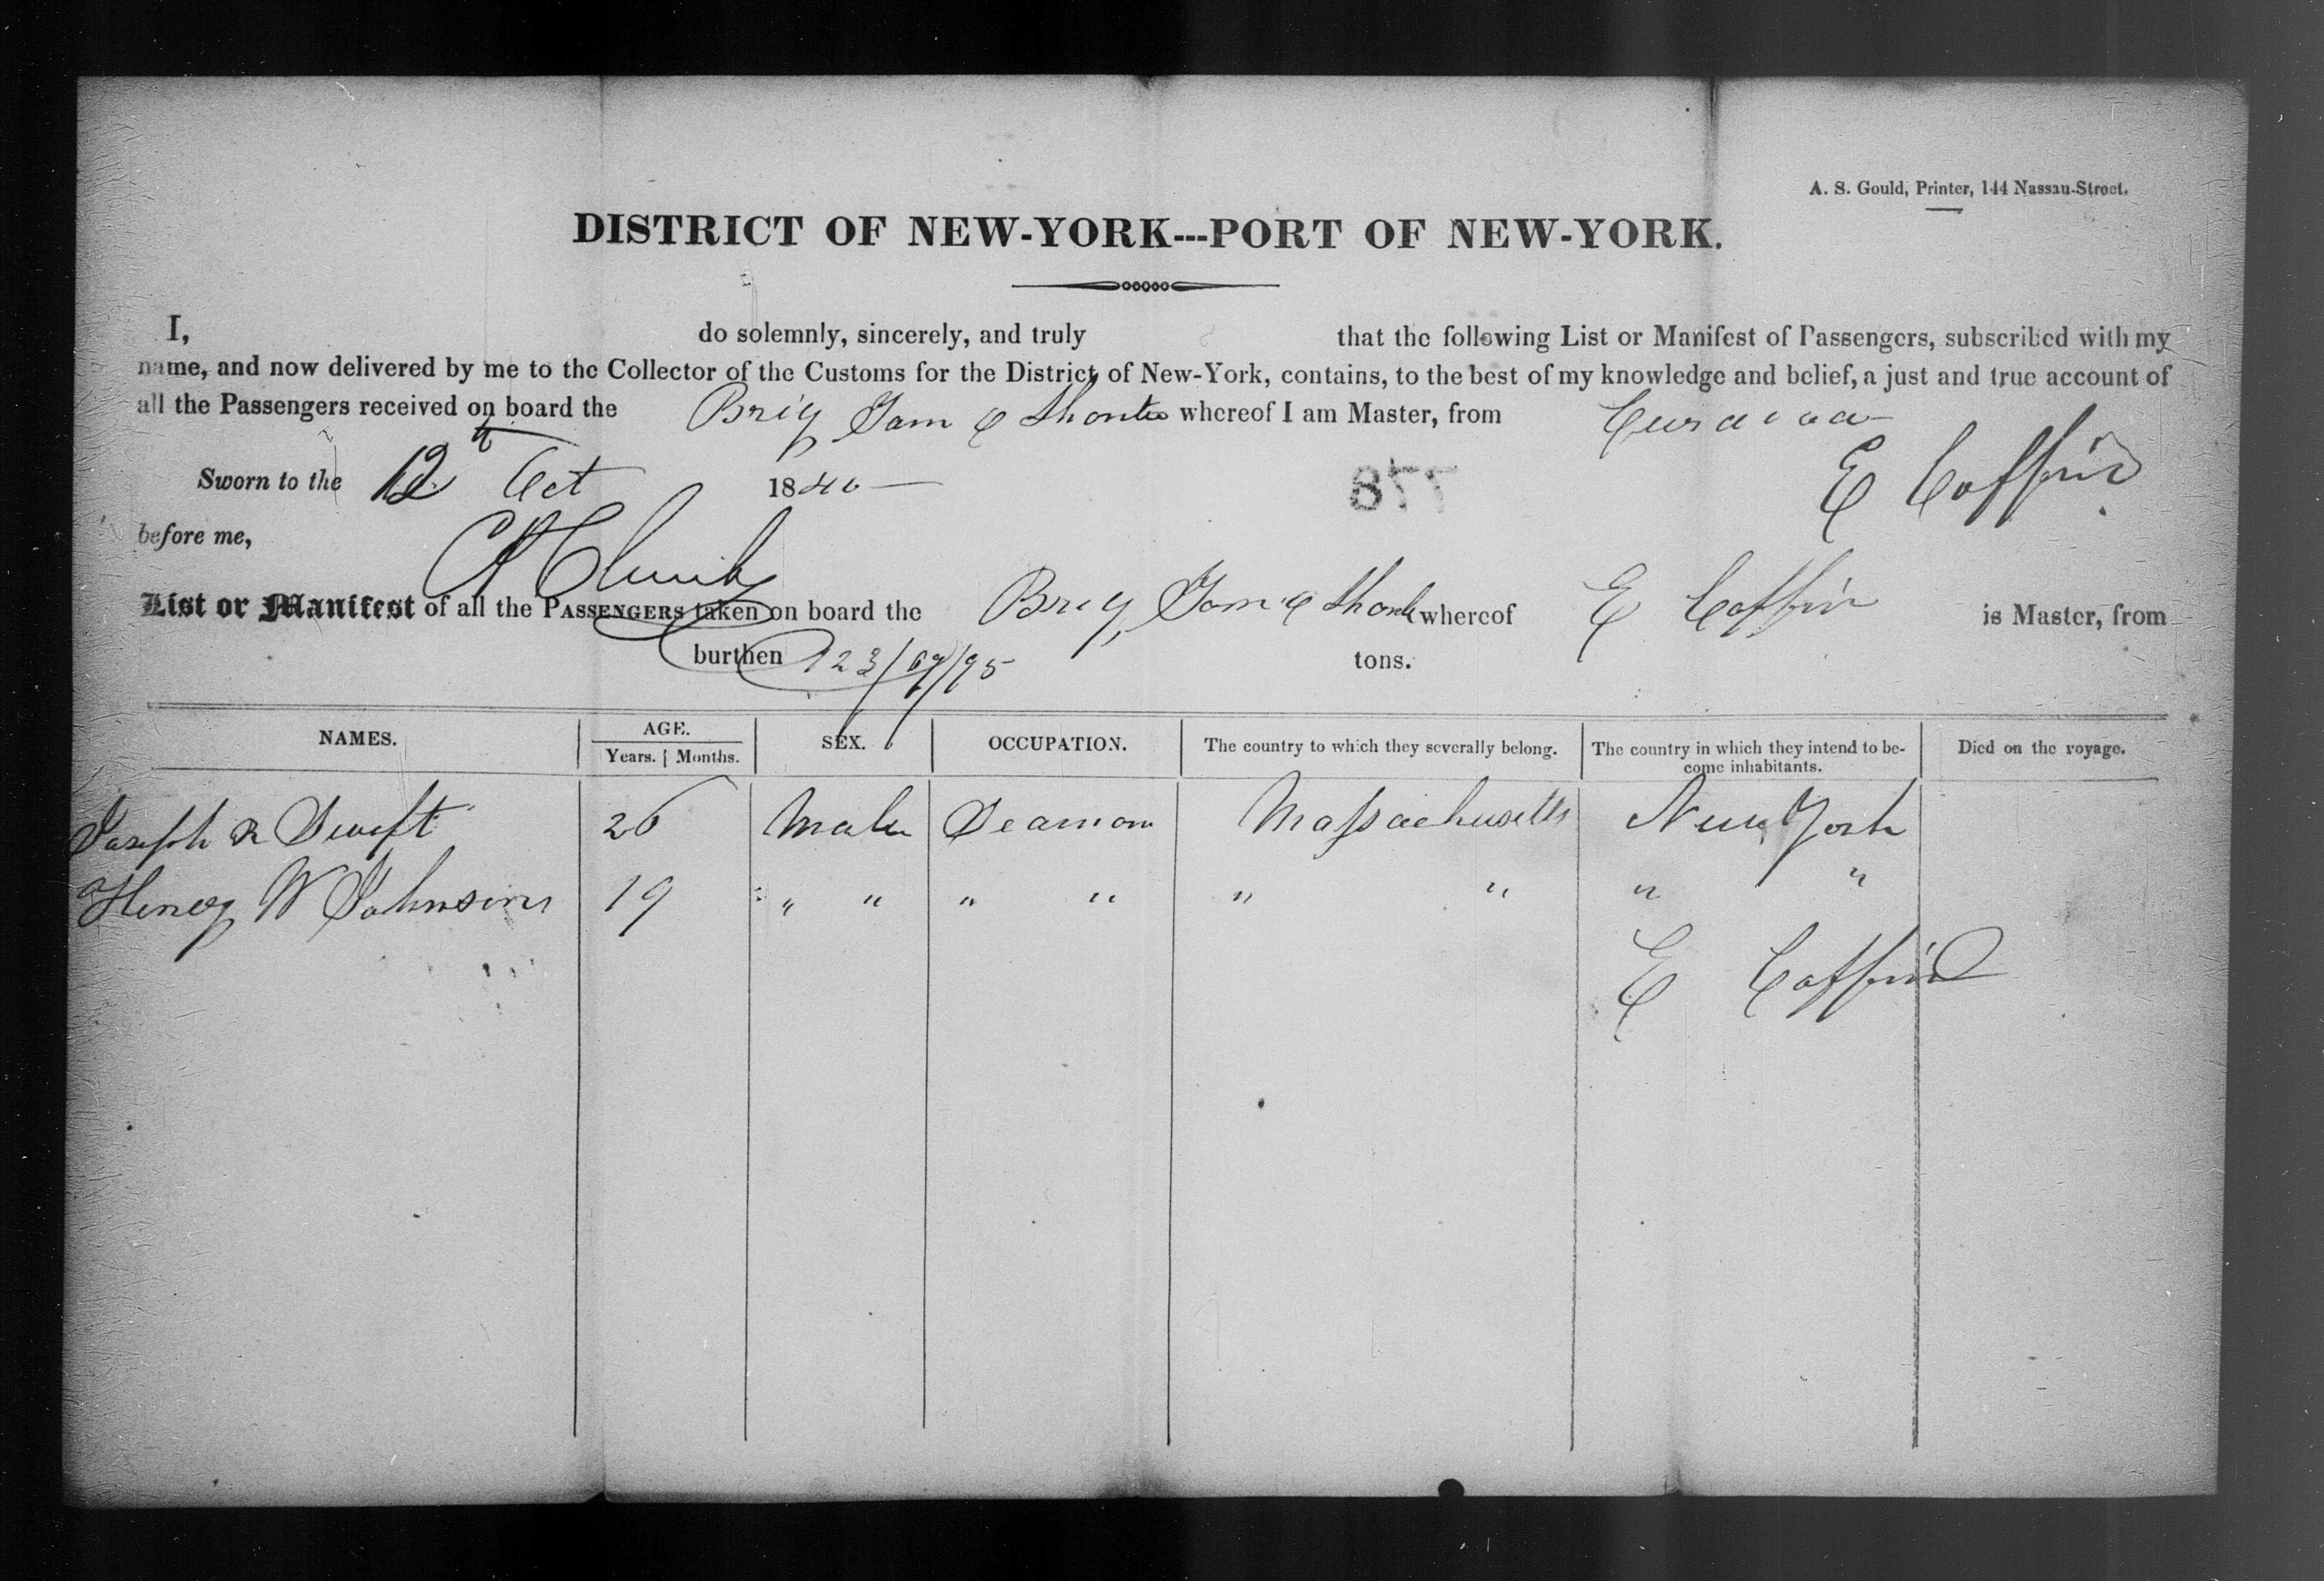 A. S. Gould, Printer, 144 Nassau-Street.
DISTRICT OF NEW-YORK---PORT OF NEW-YORK.
I, do solemnly, sincerely, and truly that the following List or Manifest of Passengers, subscribed with my
name, and now delivered by me to the Collector of the Customs for the District of New-York, contains, to the best of my knowledge and belief, a just and true account of
all the Passengers received on board the Brig whereof I am Master, from
Sworn to the 12 Oct 1846 877 E Coffin
before me,
List or Manifest of all the PASSENGERS taken on board the Brig whereof E Coffin is Master, from
burthen 123/67/95 tons.
NAMES. AGE. SEX. OCCUPATION. The country to which they severally belong. The country in which they intend to be- Died on the voyage.
Years. Months. come inhabitants.
Joseph R Swift 26 Male Seaman Massachusetts New York
Henry W Johnson 19 " " " " " " " "
E Coffin